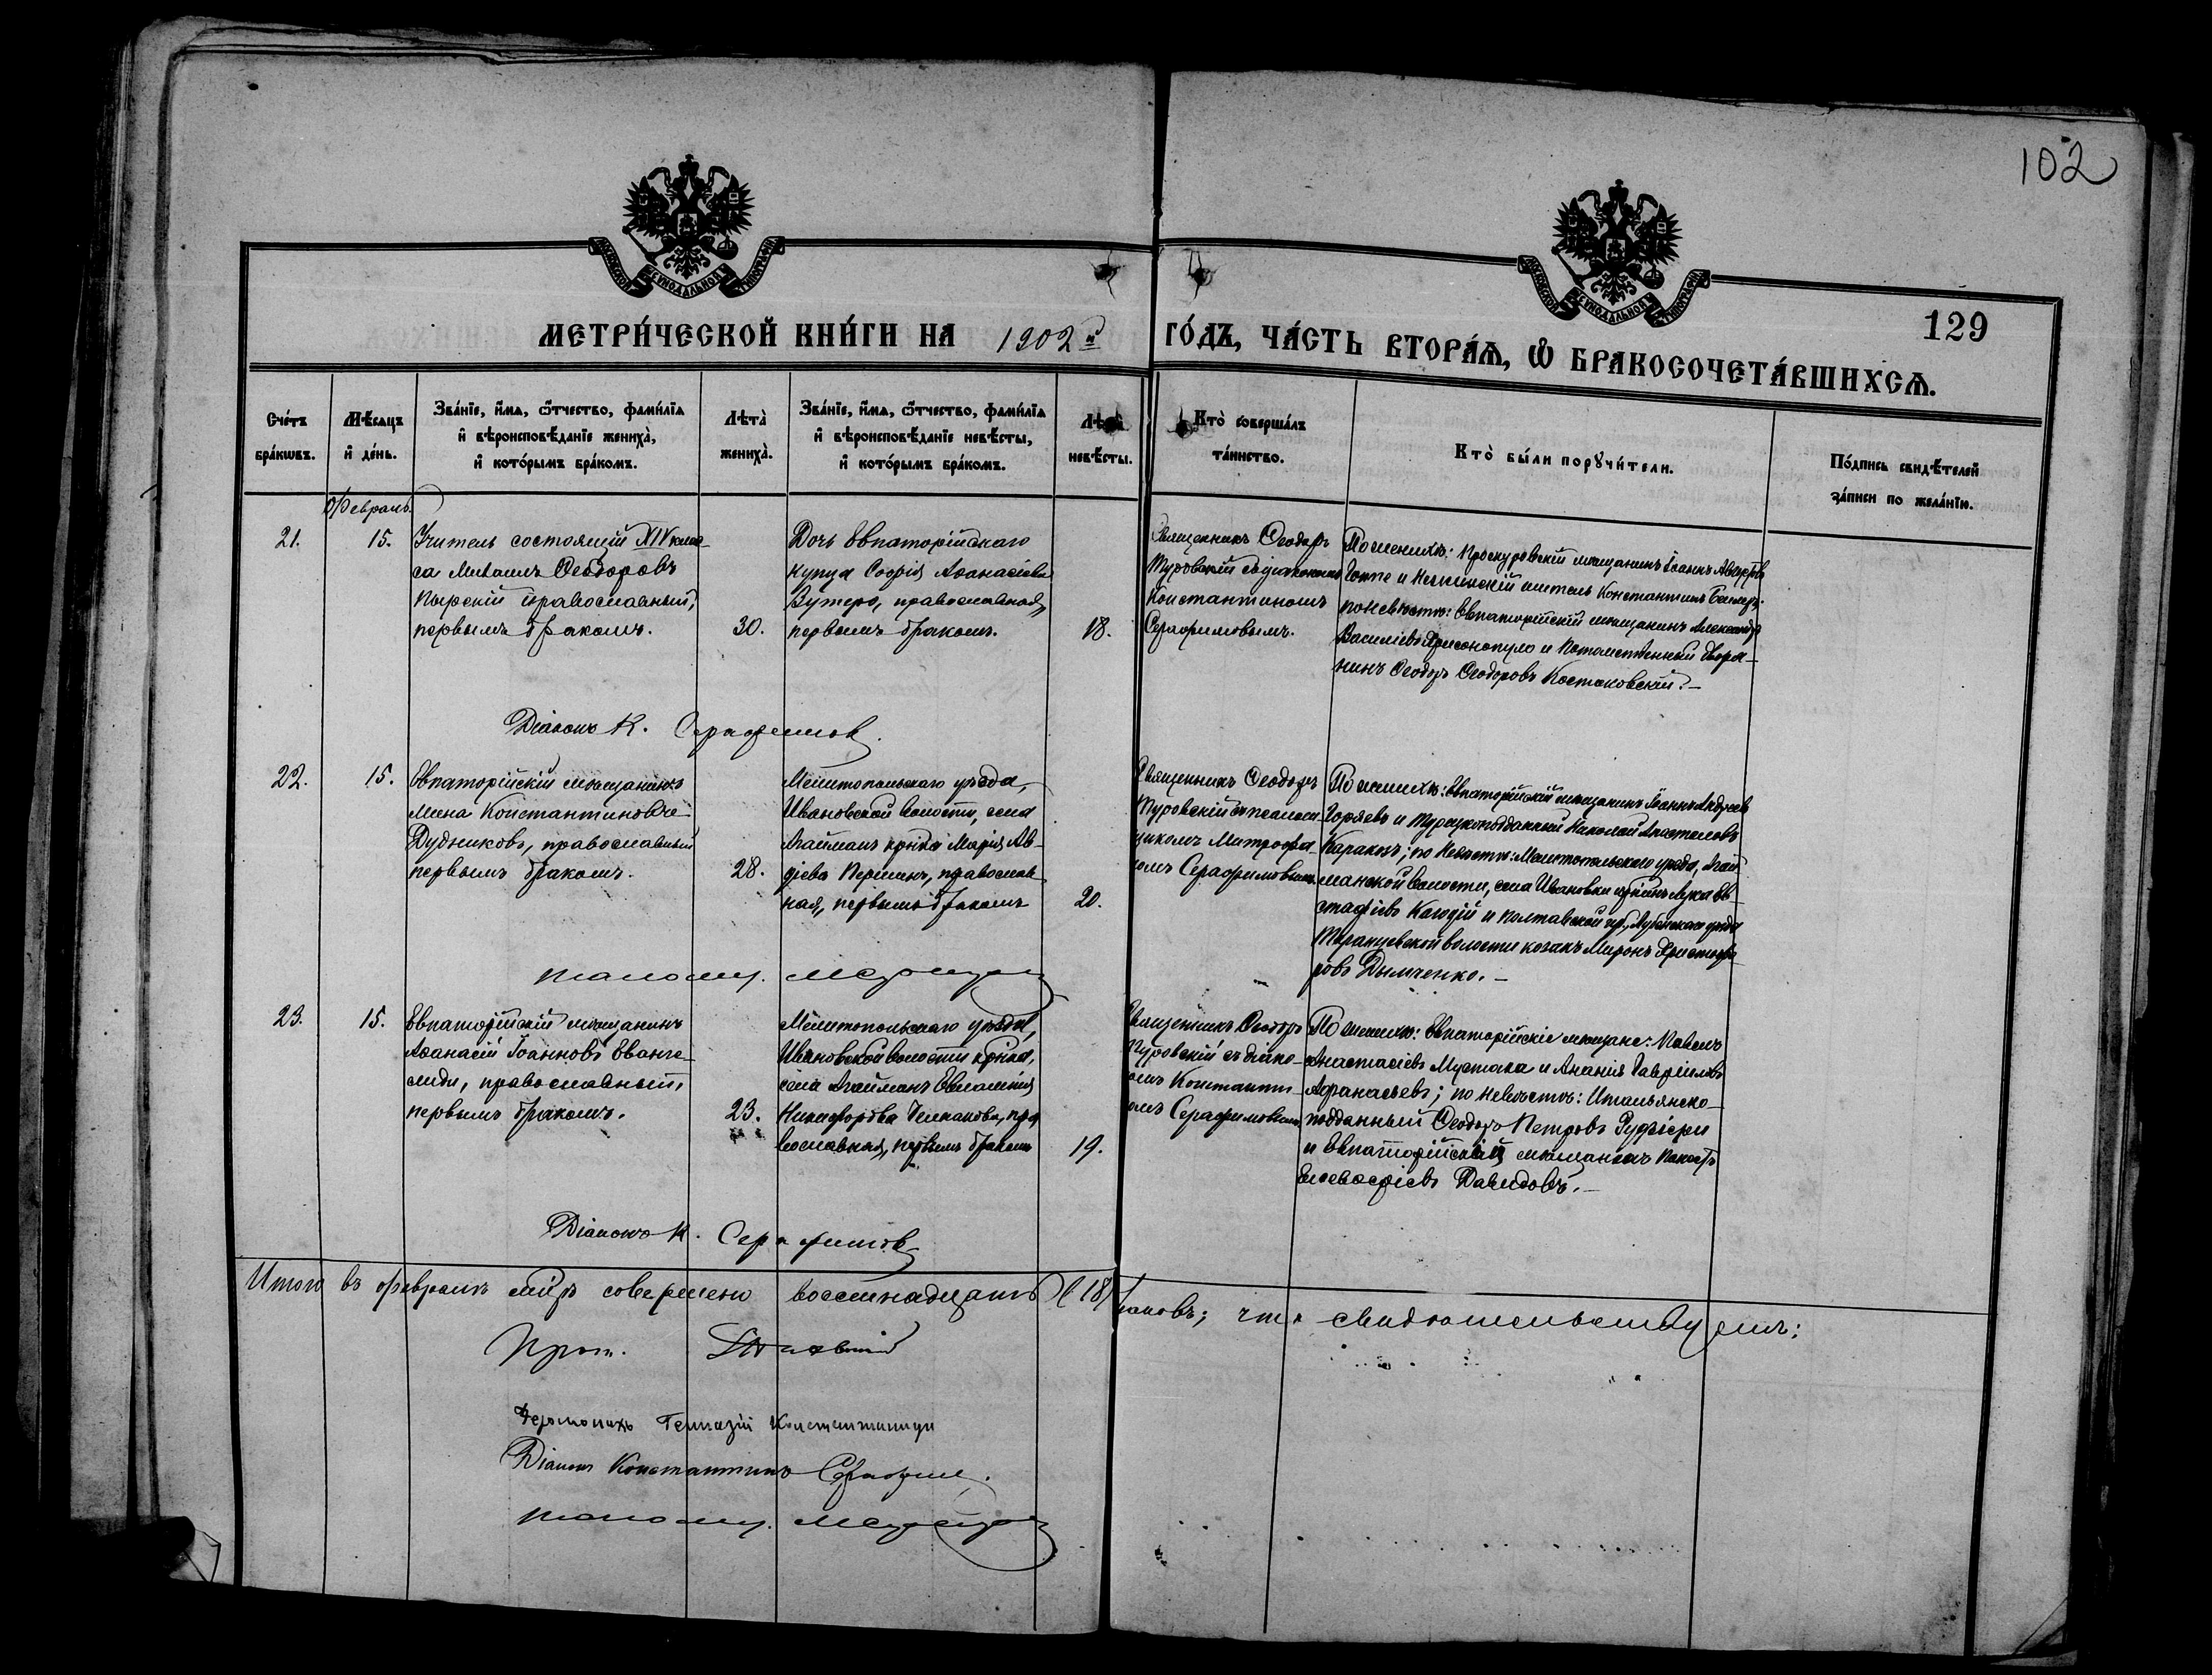 102
129
МЕТРИ́ЧЕСКОЙ КНИ́ГИ НА 1902 й ГО́ДЪ, ЧА́СТЬ ВТОРА́Ѧ, Ѡ҆ БРАКОСОЧЕТА́ВШИХСѦ.
Сче́тъ бра́кѡвъ.
Мѣ́сѧцъ и҆ де́нь.
Зва́нїе, и҆́мѧ, ѻ҆́тчество, фами́лїѧ и҆ вѣроисповѣ́данїе жениха̀, и҆ кото́рымъ бра́комъ.
Лѣта̀ жениха̀.
Зва́нїе, и҆́мѧ, ѻ҆́тчество, фами́лїѧ и҆ вѣроисповѣ́данїе невѣ́сты, и҆ кото́рымъ бра́комъ.
Лѣта̀ невѣ́сты.
Кто̀ соверша́лъ та́инство.
Кто̀ бы́ли порꙋчи́тели.
По́дпись свидѣ́телей за́писи по жела́нїю.
Февраль.
21.
15.
Учитель состоящій XIV клас-
са Михаилъ Ѳеодоровъ
Пырскій православный,
первымъ бракомъ.
30.
Дочь Евпаторійскаго
купца Софія Аѳанасіева
православная,
первымъ бракомъ.
18.
Священникъ Ѳеодоръ
Туровскій съ діакономъ
Константиномъ
Серафимовымъ.
По женихѣ: Проскуровскій мѣщанинъ Іоаннъ
Гоппе и Нѣжинскій житель Константинъ
по невѣстѣ: Евпаторійскій мѣщанинъ Александръ
Василіевъ Хрисонопуло и Потомственный двора-
нинъ Ѳеодоръ Ѳеодоровъ Костаковскій. –
Діаконъ К. Серафимов
22.
15.
Евпаторійскій мѣщанинъ
Мина Константиновъ
Дудниковъ, православный
первымъ бракомъ.
28.
Мелитопольскаго уѣзда,
Ивановской волости, села
Агайманъ кр-нка Марія Ав-
діева православ-
ная, первымъ бракомъ
20.
Священникъ Ѳеодоръ
Туровскій съ псалом-
щикомъ Митрофа-
номъ Серафимовымъ
По женихѣ: Евпаторійскій мѣщанинъ Іоаннъ Андреевъ
Горяевъ и Турецкоподданный Николай Апостоловъ
Каракозъ; по невѣстѣ: Мелитопольскаго уѣзда, Агай-
манской волости, села Ивановки кр-нинъ Лука Ев-
стафіевъ и Полтавской губ., Лубенскаго уѣзда
волости козакъ Миронъ Христофо-
ровъ Дымченко. –
23.
15.
Евпаторійскій мѣщанинъ
Аѳанасій Іоанновъ Еванге-
лиди, православный,
первымъ бракомъ.
23.
Мелитопольскаго уѣзда,
Ивановской волости кр-нка,
села Агайманъ Евлампія
Никифорова Челпанова, пра-
вославная, первымъ бракомъ
19.
Священникъ Ѳеодоръ
Туровскій съ діако-
номъ Константи-
номъ Серафимовымъ
По женихѣ: Евпаторійскіе мѣщане: Павелъ
Анастасіевъ Мустака и Ананія Гавріиловъ
Афанасьевъ; по невѣстѣ: Итальянско-
подданный Ѳеодоръ Петровъ
и Евпаторійскій мѣщанинъ
Давидовъ. –
Діаконъ К. Серафимов
Итого въ февралѣ м-цѣ совершено восемнадцать (18) браковъ; что свидѣтельствуемъ:
Прот.
Іеромонахъ Геннадій Константиниди
Діаконъ Константинъ Серафим.